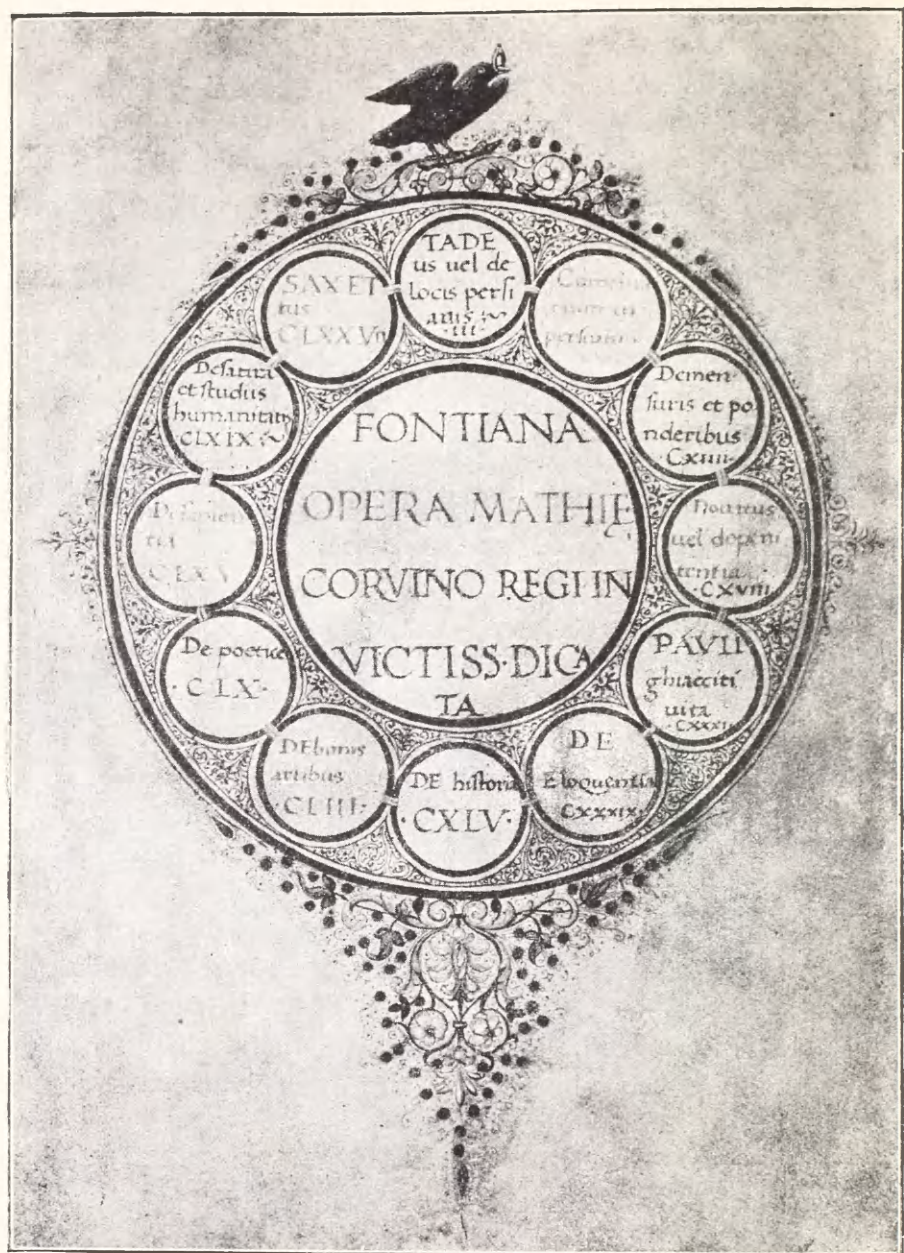 FONTIANA
OPERA MATHIĘ
CORVINO REGI IN
VICTISS·DICA
TA
TADE
us uel de
locis persi
anis
·III·
persium
Demen
suris et po
nderibus
CXIIII
Donatus
uel de peni
tentia
CXVIII
PAVLI
ghiacceti
uita
DE
Eloquentia
CXXXIX
DE historia
·CXLV·
DE bonis
artibus
·CLIII·
De poetice
·CLX·
De sapien
tia
CLXV
De satira
et studiis
humanitatis
CLXIX
SAXET
tus